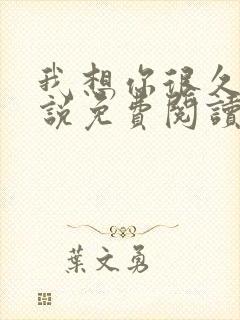 我想你很久
說免費閱讀
葉文勇